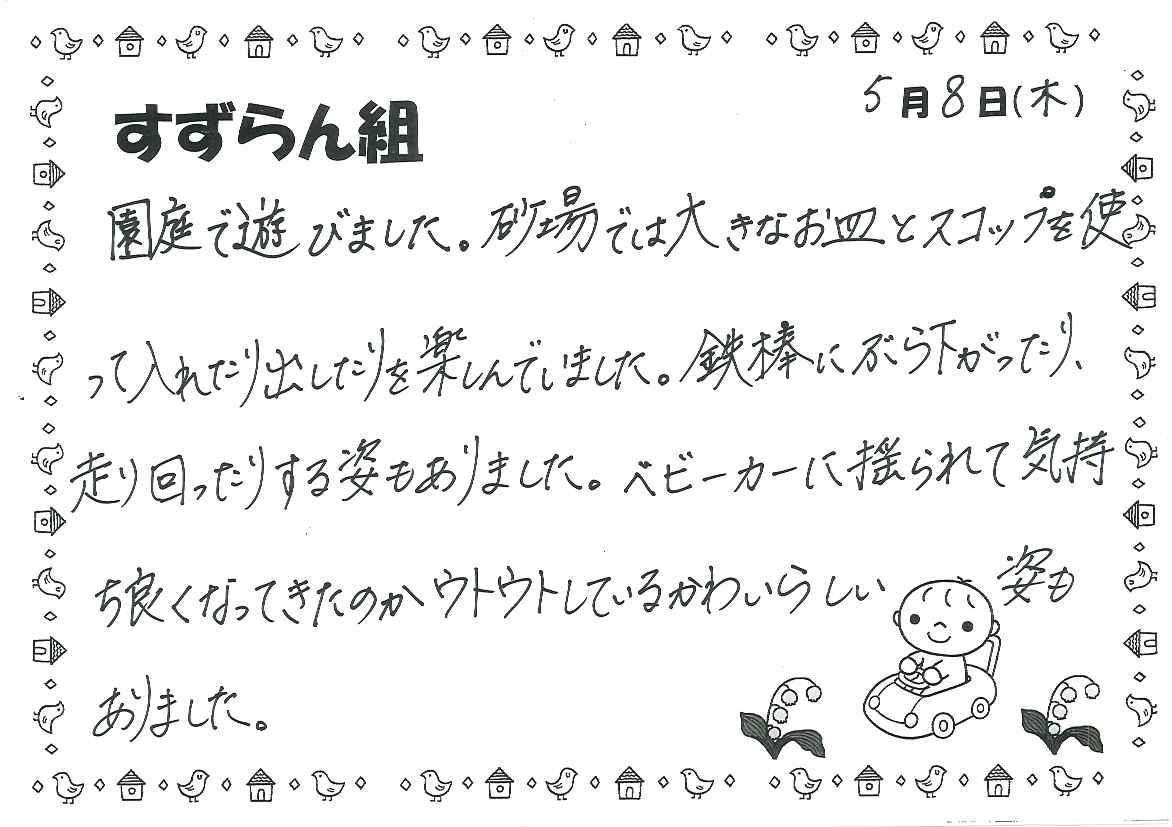 5月8日(木)
すずらん組
園庭で遊びました。砂場では大きなお皿とスコップを使
って入れたり出したりを楽しんでいました。鉄棒にぶら下がったり、
走り回ったりする姿もありました。ベビーカーに揺られて気持
ち良くなってきたのかウトウトしているかわいらしい姿も
ありました。